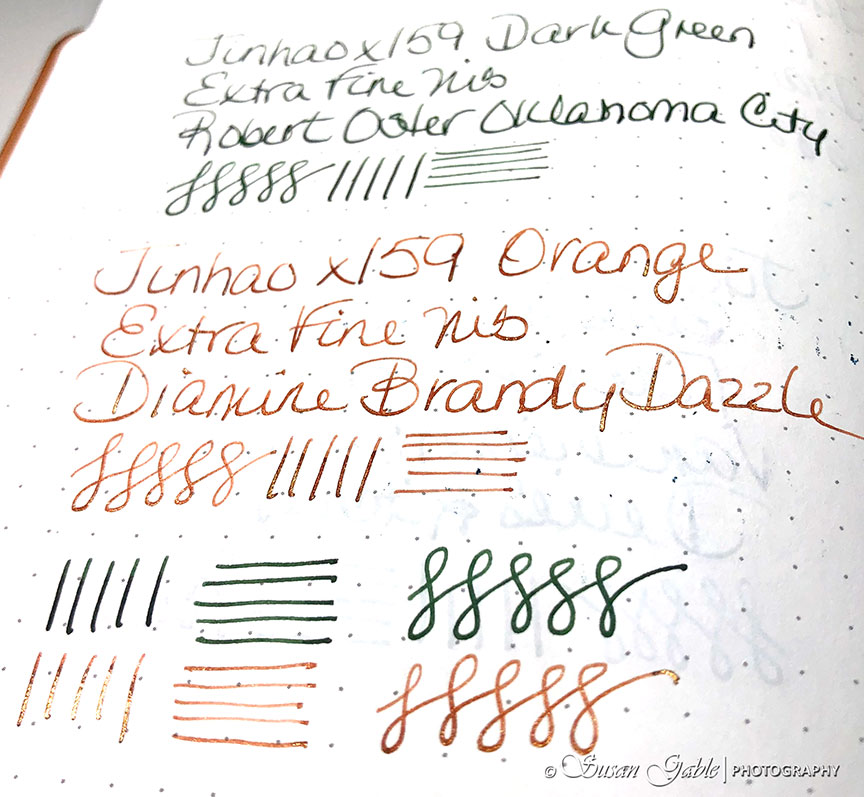 Jinhao x159 Dark Green
Extra Fine Nib
Robert Oster Oklahoma City
Jinhao x159 Orange
Extra Fine Nib
Diamine Brandy Dazzle
© Susan Gable | PHOTOGRAPHY